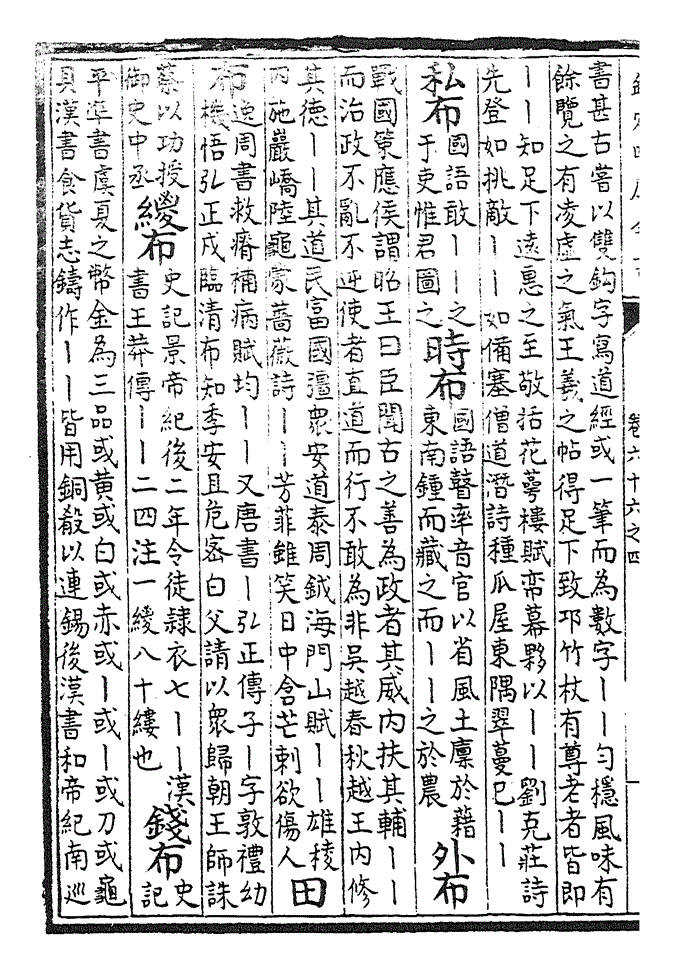 卷六十六之四
書甚古嘗以雙鈎字寫道經或一筆而為數字丨丨勻穩風味有
餘覽之有凌虛之氣王羲之帖得足下致邛竹杖有尊老者皆即
丨丨知足下遠惠之至敬括花萼樓賦帟幕夥以丨丨劉克莊詩
先登如挑敵丨丨如備塞僧道潛詩種瓜屋東隅翠蔓已丨丨
私布
國語敢丨丨之
于吏惟君圖之
時布
國語瞽率音官以省風土廪於藉
東南鍾而藏之而丨丨之於農
外布
戰國策應侯謂昭王曰臣聞古之善為政者其威内扶其輔丨丨
而治政不亂不逆使者直道而行不敢為非吳越春秋越王内修
其德丨丨其道民富國彊衆安道泰周鉞海門山賦丨丨雄稜
丙施巖嶠陸龜蒙薔薇詩丨丨芳菲雖笑日中含芒刺欲傷人
田
布
逸周書救瘠補病賦均丨丨又唐書丨弘正傳子丨字敦禮幼
機悟弘正戍臨清布知季安且危宻白父請以衆歸朝王師誅
蔡以功授
御史中丞
緵布
史記景帝紀後二年令徒隸衣七丨丨漢
書王莽傳丨丨二四注一緵八十縷也
錢布
史
記
平準書虞夏之幣金為三品或黃或白或赤或丨或丨或刀或龜
貝漢書食貨志鑄作丨丨皆用銅殽以連錫後漢書和帝紀南巡